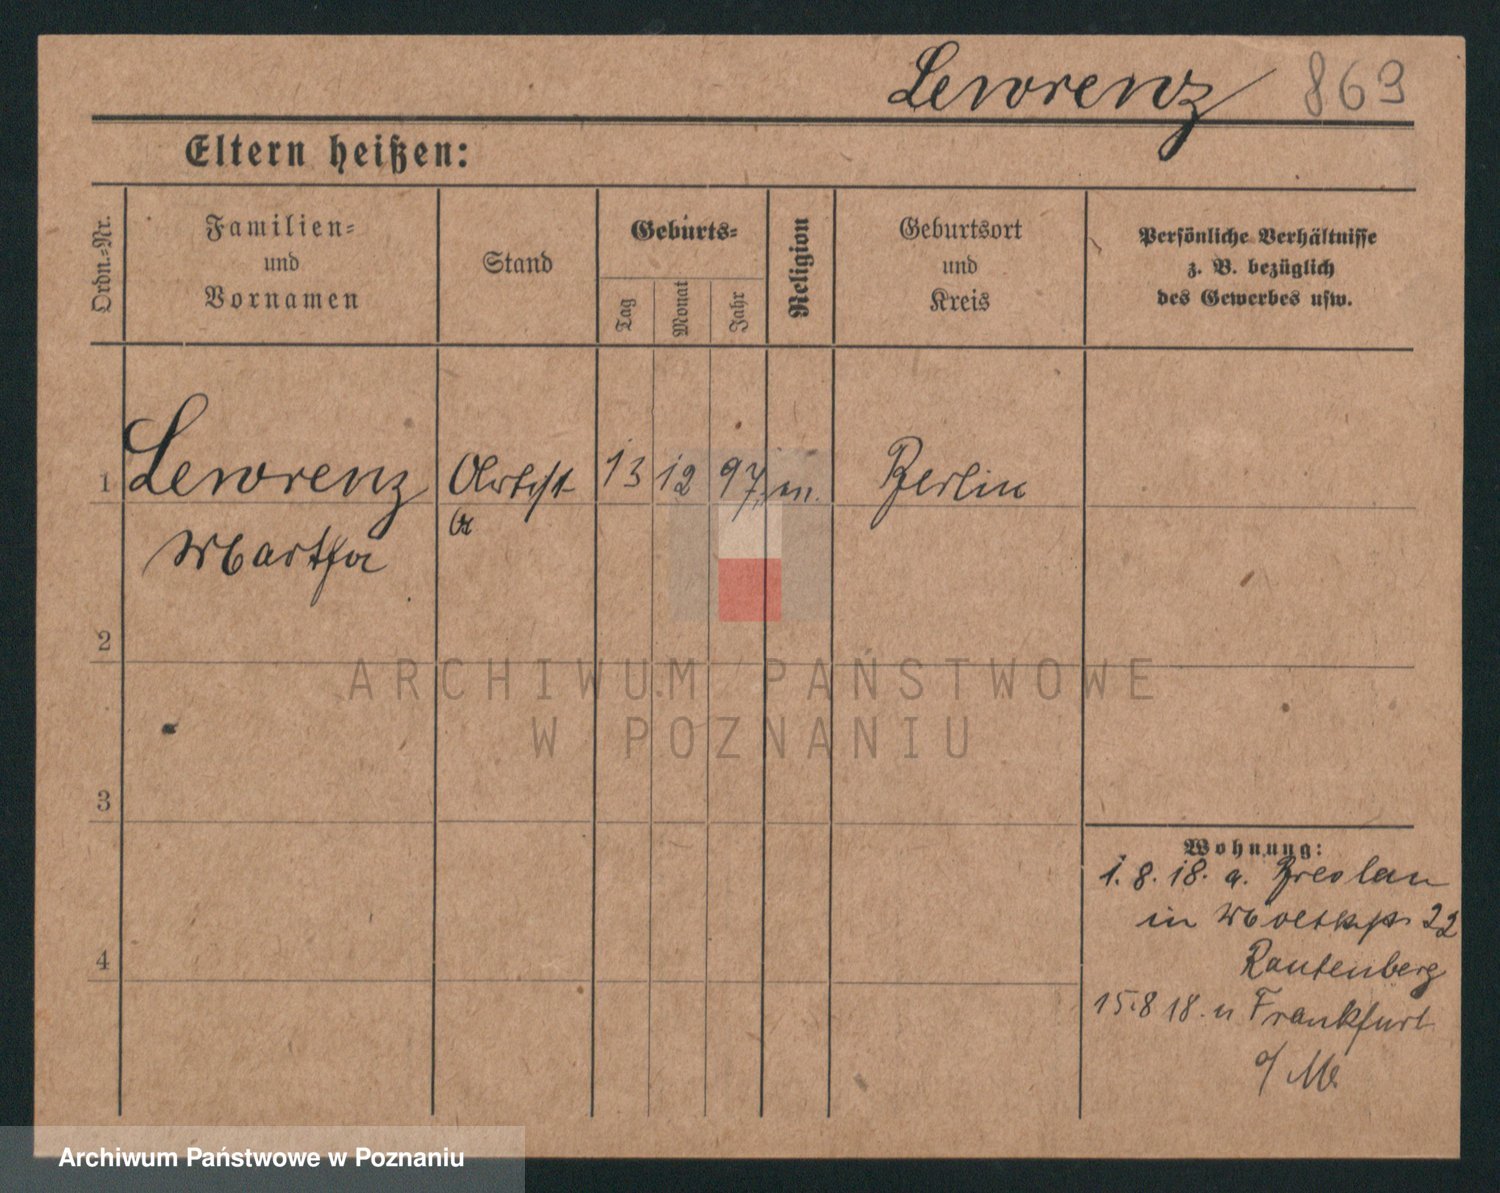 Lewrenz 869
Eltern heißen:
Ordn.-Nr.
Familien-
und
Vornamen
Stand
Geburts-
Tag
Monat
Jahr
Religion
Geburtsort
und
Kreis
Persönliche Verhältnisse
z. B. bezüglich
des Gewerbes usw.
1 Lewrenz 13 12 97 Berlin
Martha
2
3
4
Wohnung:
1.8.18. a. Breslau
in 22
Rautenberg
15.8 18. n Frankfurt
a/M.
ARCHIWUM PAŃSTWOWE
W POZNANIU
Archiwum Państwowe w Poznaniu